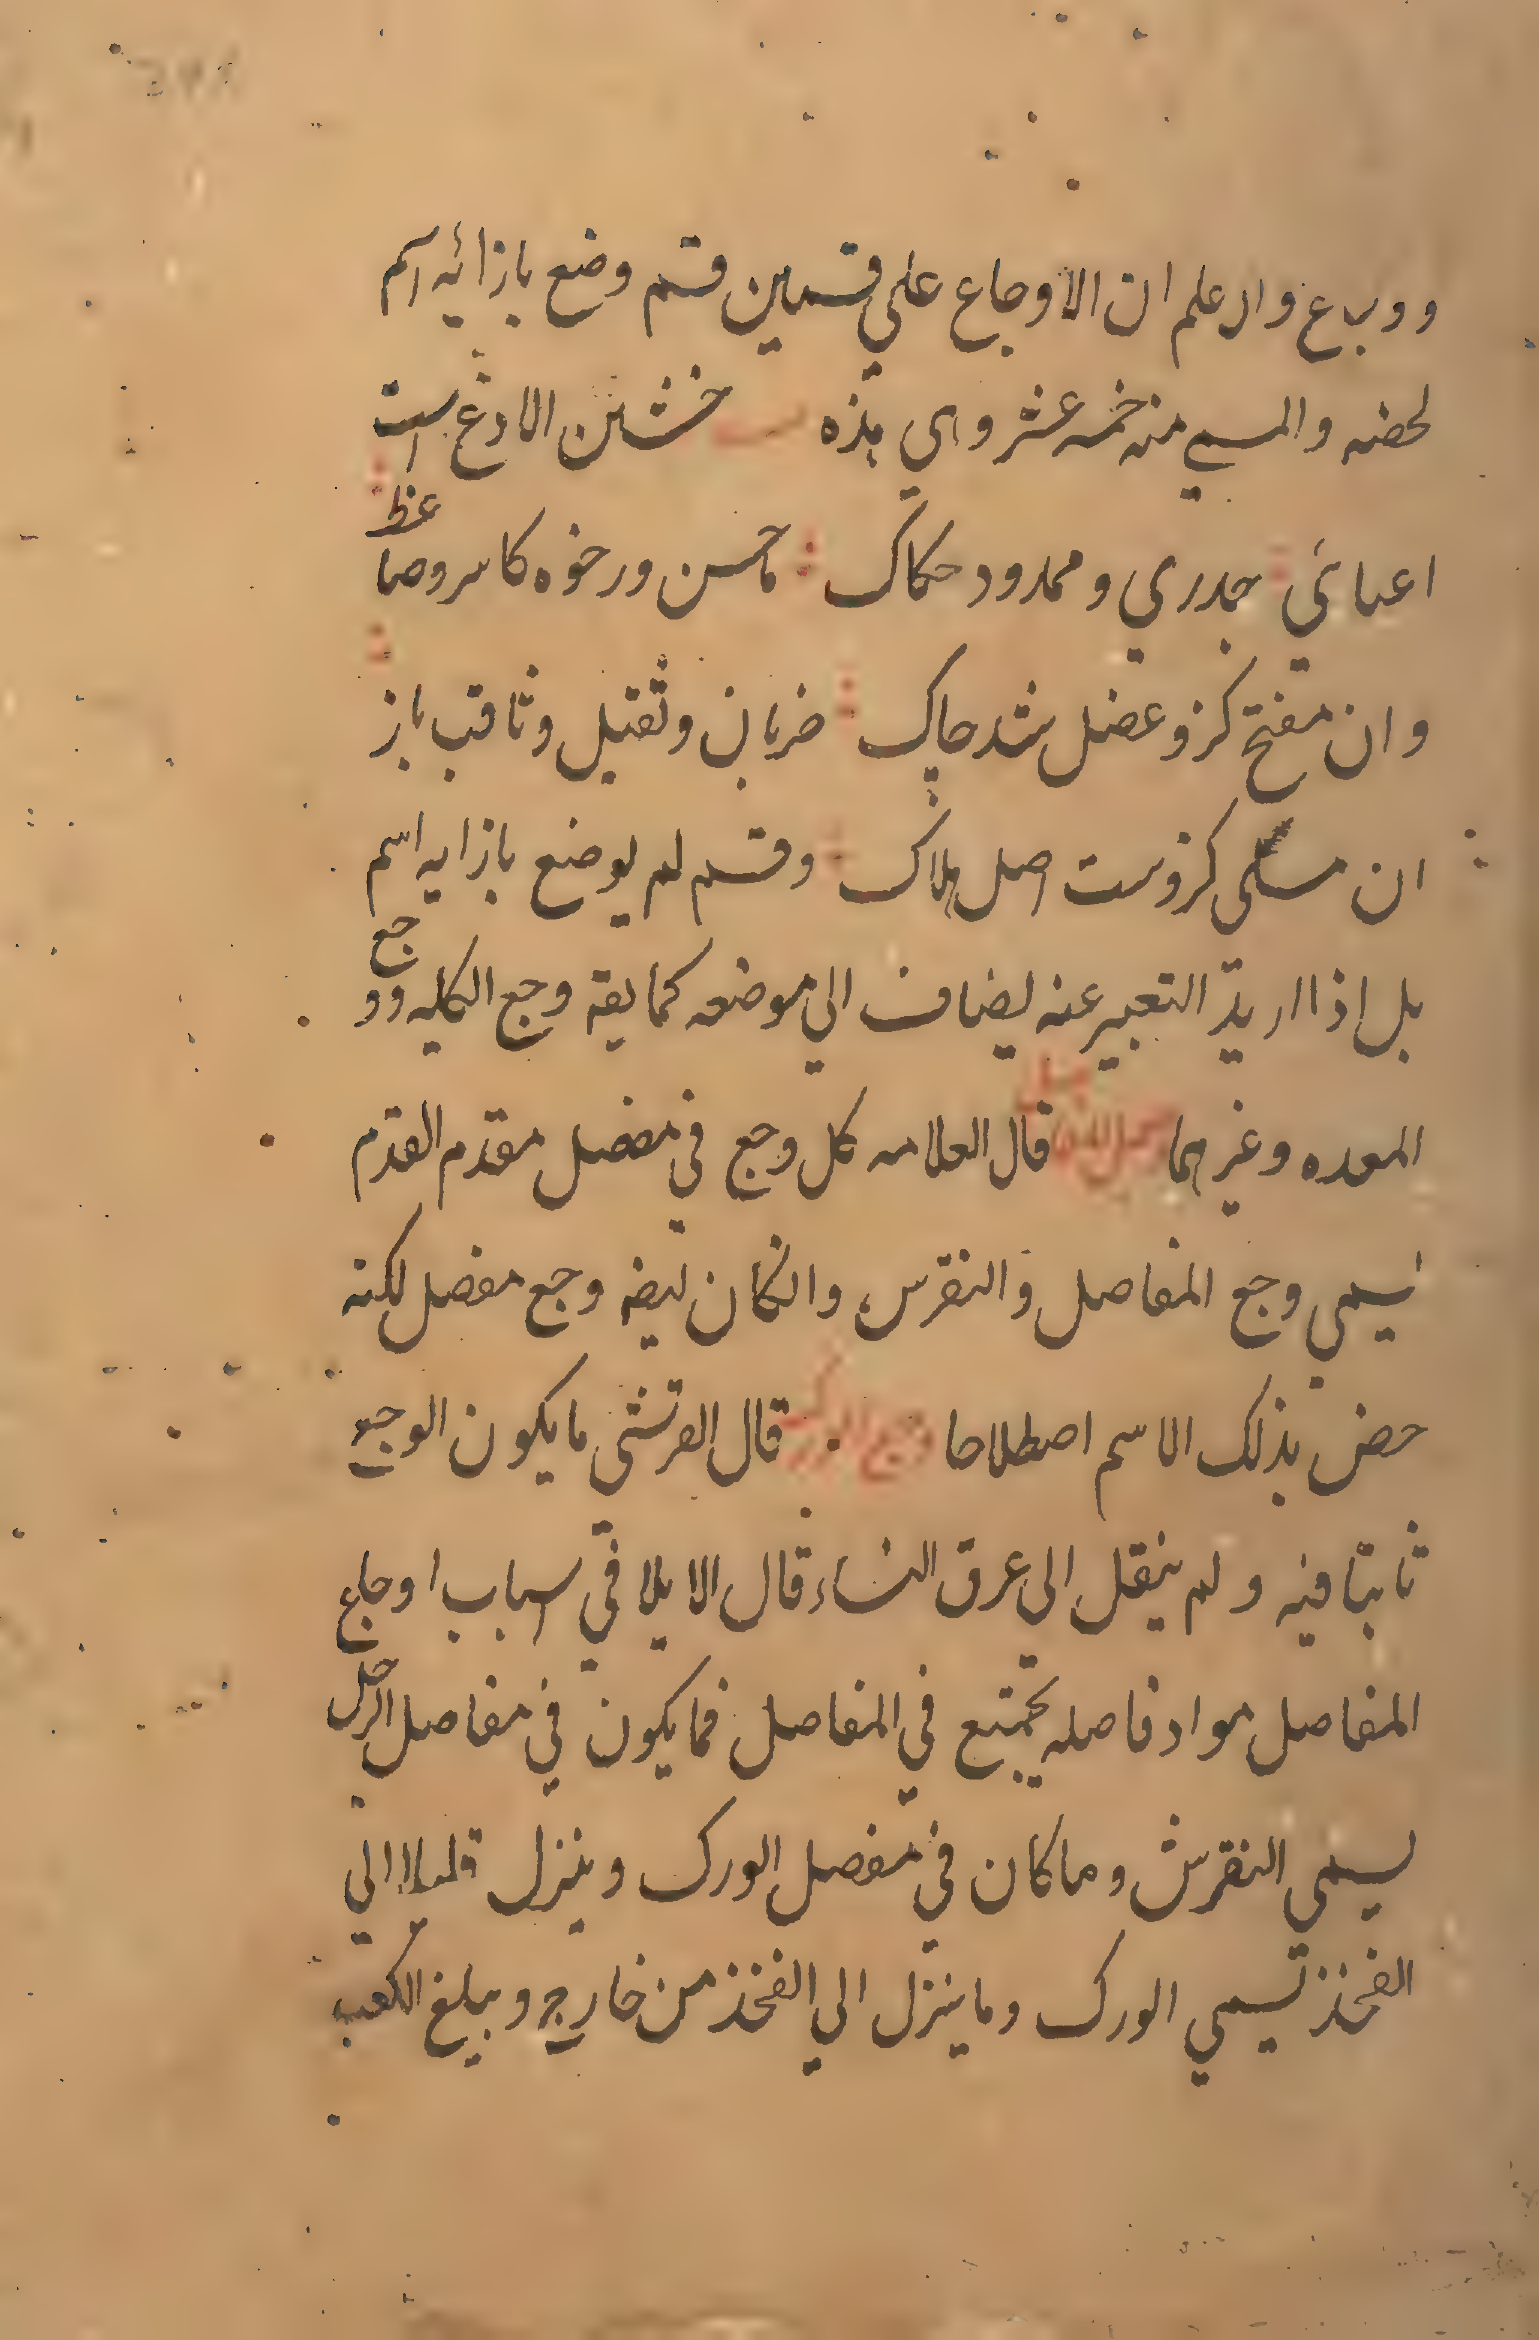 ووب ع وال علم ان الاوجاع علي قسمين قسم وضع بازائه اسم
لحضه والمسمي منه خمسه عشر وهي هذه خشن الادغ است
اعيائي جدري وممدود حكاك ناخس ورخوه كاسر وضاغط
وان مفتح كزو عضل شد چاك ضربان وثقيل وثاقب باز
ان مسلي كزوست اصل هلاك وقسم لم يوضع بازايه اسم
بل اذا اريد التعبير عنه يضاف الي موضعه كما يقه وجع الكليه ووجع
المعده وغيرهما قال العلامه كل وجع في مفصل مقدم القدم
يسمي وجع المفاصل والنقرس والنكان ايضه وجع مفصل لكنه
خض بذلك الاسم اصطلاحا وجع الورك قال القرشي ما يكون الوجع
ثابتا فيه ولم ينقل الى عرق النساء قال الايلاقي اسباب اوجاع
المفاصل مواد فاصله يجتمع في المفاصل فما يكون في مفاصل الرجل
يسمي النقرس وما كان في مفصل الورك وينزل قليلا الي
الفخذ تسمي الورك وما ينزل الي الفخذ من خارج ويبلغ الكعب